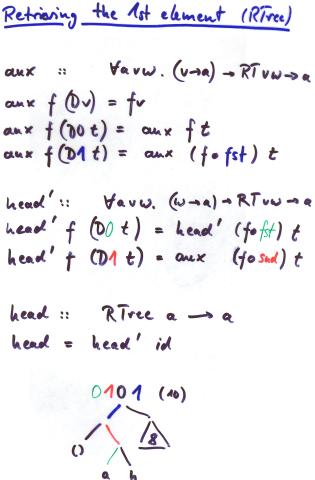 Retrieving the 1st element (RTree)
aux :: ∀avw. (v→a) → RT v w → a
aux f (D v) = f v
aux f (D0 t) = aux f t
aux f (D1 t) = aux (f∘fst) t
head' :: ∀avw. (w→a) → RT v w → a
head' f (D0 t) = head' (f∘fst) t
head' f (D1 t) = aux (f∘snd) t
head :: RTree a → a
head = head' id
0101 (10)
() 8
a b